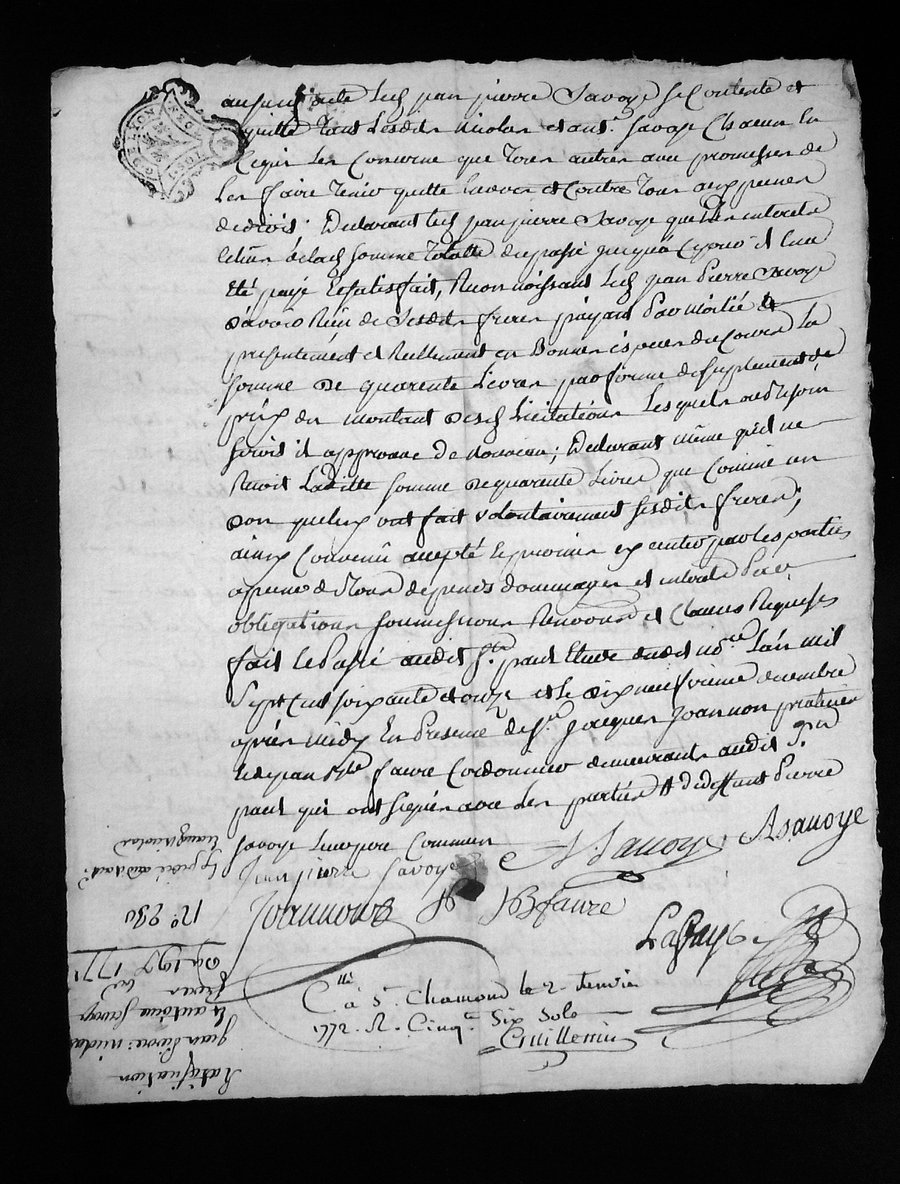 jean pierre Savoye se Contente et
quitte tant sesdits Nicolas et ant. Savoye Chacun en
ce qui les Concerne que tous autres avec promesses de
les faire tenir quitte Envers et Contre tous aux peines
de droit. Declarant led. jean pierre Savoye que les interets
de lad. somme totalle du passé jusqu'a Cejour il en a
Eté payé Et satisfait, Reconnoissant led. jean Pierre Savoye
D'avoir Reçu de Sesdits freres payant Par moitié et
presentement et Reellement en Bonnes espèces du Cours La
somme De quarente Livres par forme de suplement de
prix du montant desd. Licitations Lesquels ou Besoin
seroit il approuve De nouveau; Declarant même qu'il ne
Reçoit Laditte somme De quarente Livres que Comme un
Don que luy ont fait volontairement sesdits freres;
ainsy Convenu accepté promis par les parties
a peine de tous depends dommages et interets Par
obligations soumissions Renonc.ons et Clauses Requises
fait et Passé audit St. paul Etude dudit no.re L'an mil
Sept Cent soixante et onze et le dix neufvieme decembre
après midy En Presence de Sr. Jacques Joannon praticien
et de jean Bte. faure Cordonnier demeurants audit St.
paul qui ont signés avec les parties # dudeffunt Pierre
Savoye Leur pere Commun
A. Savoye ASavoye
Jean pierre Savoye
Joannon JBfaure
Lafay
C.lle a St. Chamond le 2. Janvier
1772. R. Cinq. Six Sols
Guillemin
Ratification
jean Pierre: nicolas
et antoine Savoye
freres
Du 19 Xbre 1771
N.o 280
G.D LYON